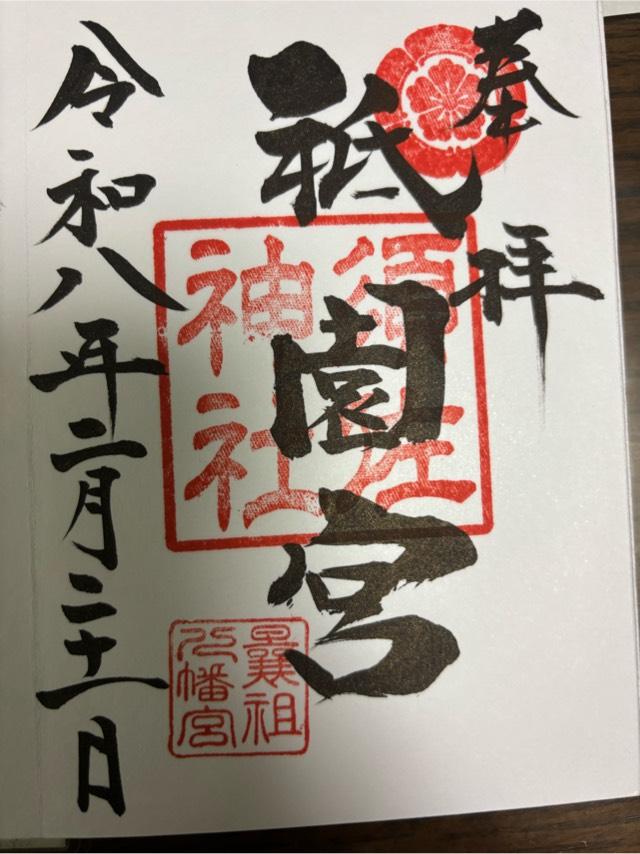 奉拝
祇園宮
須佐
神社
曩祖
八幡宮
令和八年二月二十一日